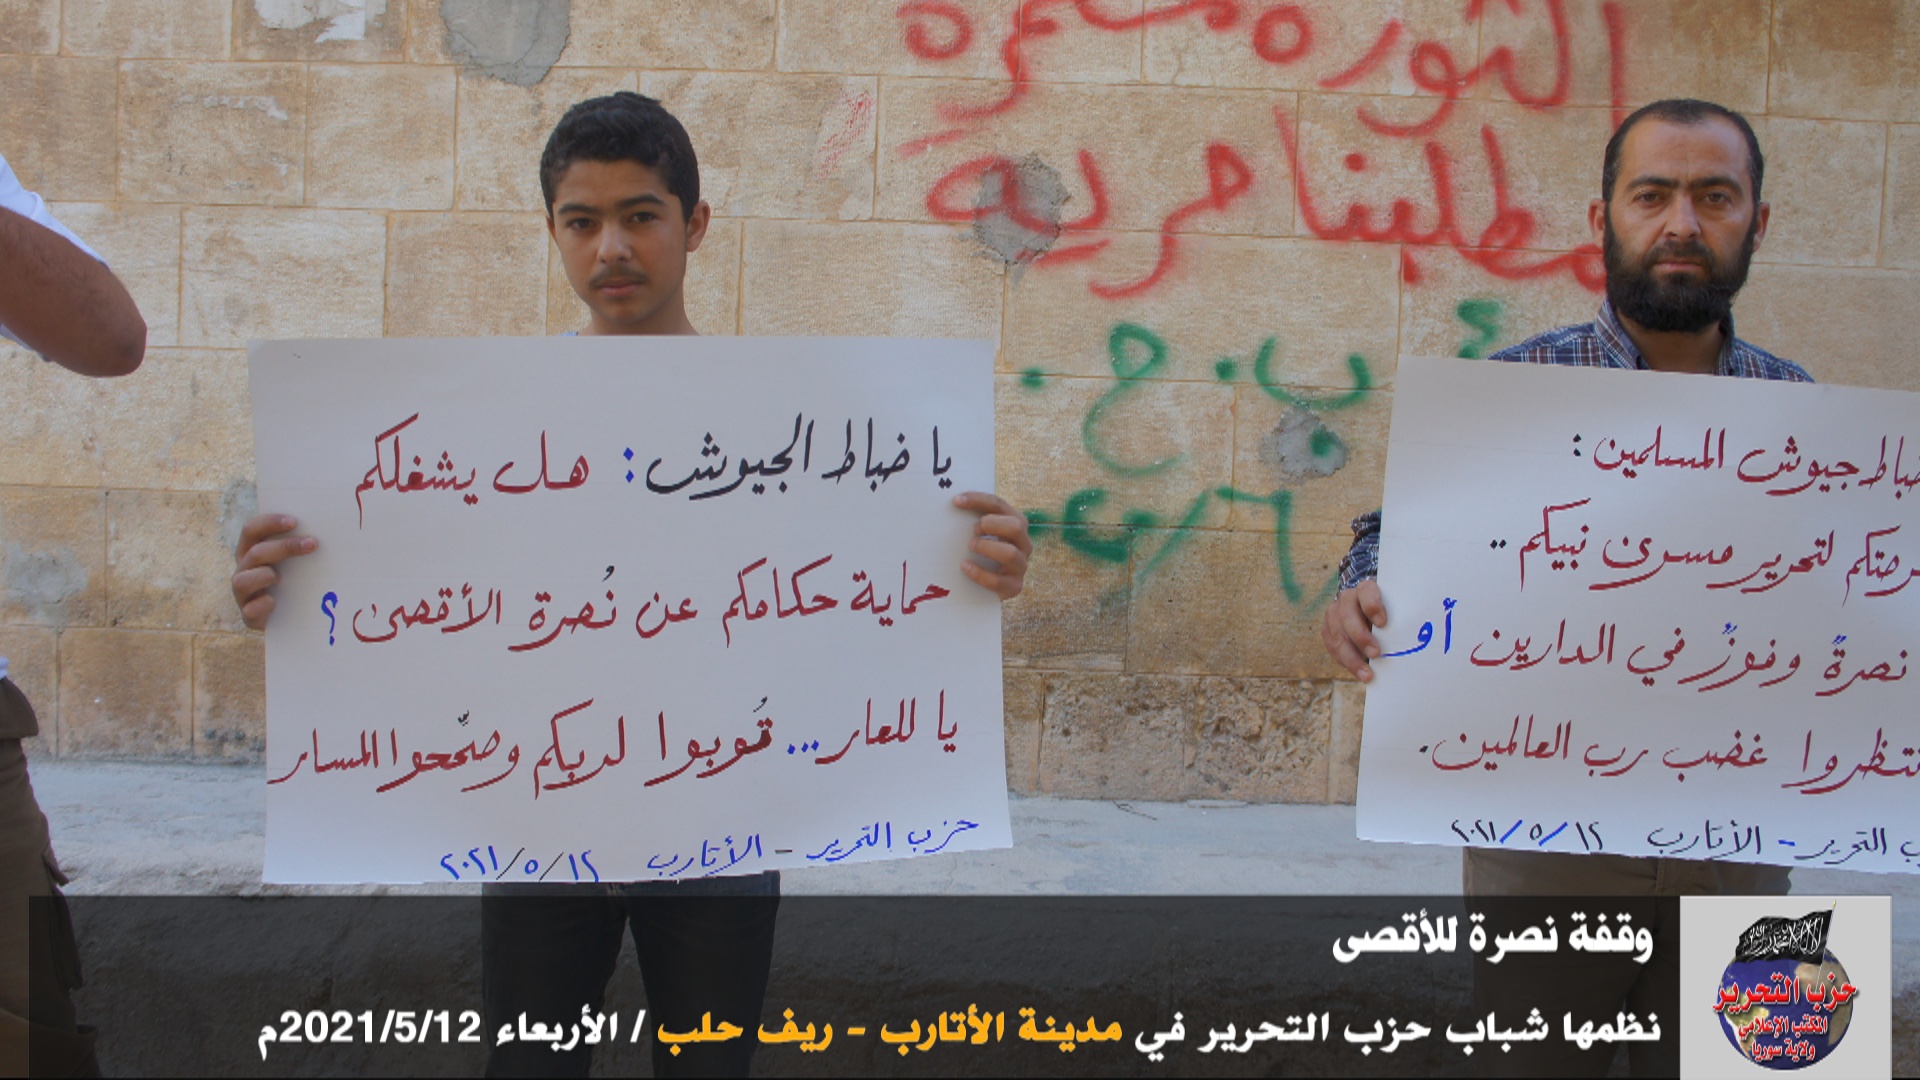 الثورة مستمرة
مطلبنا حرية
ب. ح.
يا ضباط الجيوش: هل يشغلكم
حماية حكامكم عن نُصرة الأقصى؟
يا للعار... تُوبوا لربكم وصحّحوا المسار
حزب التحرير - الأتارب ٢٠٢١/٥/١٢
ضباط جيوش المسلمين:
لتحرير مسرى نبيكم ..
نصرةٌ وفوزٌ في الدارين أو
غضب رب العالمين.
التحرير - الأتارب ٢٠٢١/٥/١٢
وقفة نصرة للأقصى
نظمها شباب حزب التحرير في مدينة الأتارب - ريف حلب / الأربعاء 2021/5/12م
حزب التحرير
المكتب الإعلامي
ولاية سوريا